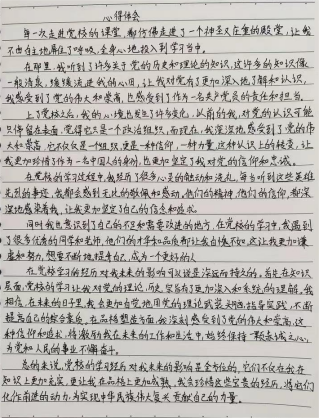 心得体会
每一次走进党校的课堂,都仿佛走进了一个神圣又庄重的殿堂,让我
不由自主地屏住了呼吸,全身心地投入到学习当中。
在那里,我听到了许多关于党的历史和理论的知识,这许多的知识像
一股清泉,缓缓流进我的心田,让我对党有了更加深入地了解和认识。
我感受到了党的伟大和崇高,也感受到了作为一名共产党员的责任和担当。
上了党校之后,我的心境也发生了许多变化,以前的我,对党的认识可能
只停留在表面,觉得它只是一个政治组织,而现在,我深深地感受到了党的伟
大和崇高,它不仅仅是一个组织,更是一种信仰,一种力量,这种认识上的转变,让
我更加珍惜了作为一名中国人的身份,也更加坚定了我对党的信仰和忠诚。
在党校的学习过程中,我经历了很多心灵的触动和洗礼,每当听到那些英雄
先烈的事迹,我都会感到无比的敬佩和感动,他们的精神,他们的信仰,都深
深地感染着我,让我更加坚定了自己的信念和追求。
同时我也意识到了自己的不足和需要改进的地方,在党校的学习中,我遇到
了很多优秀的同学和老师,他们的才华和品质都让我自愧不如,这让我更加谦
虚和努力,想要不断地提高自己,成为一个更好的人。
在党校学习的经历对我未来的影响可以说是深远而持久的,首先,在知识
层面,党校的学习让我对党的理论,历史,宗旨有了更加深入和系统的理解,我
相信,在未来的日子里,我会更加自觉地用党的理论武装头脑,指导实践,不断
提高自己的综合素质,在品格塑造方面,我深刻感受到了党的伟大和崇高,这
种信仰和追求,将激励我在未来的工作和生活中,始终保持一颗赤诚之心,
为党和人民的事业不懈奋斗。
总的来说,党校的学习经历对我未来的影响是全方位的,它们不仅在我在
知识上更加充实,更让我在品格上更加成熟,我会珍惜这些宝贵的经历,将它们
化作前进的动力,为实现中华民族伟大复兴贡献自己的力量。